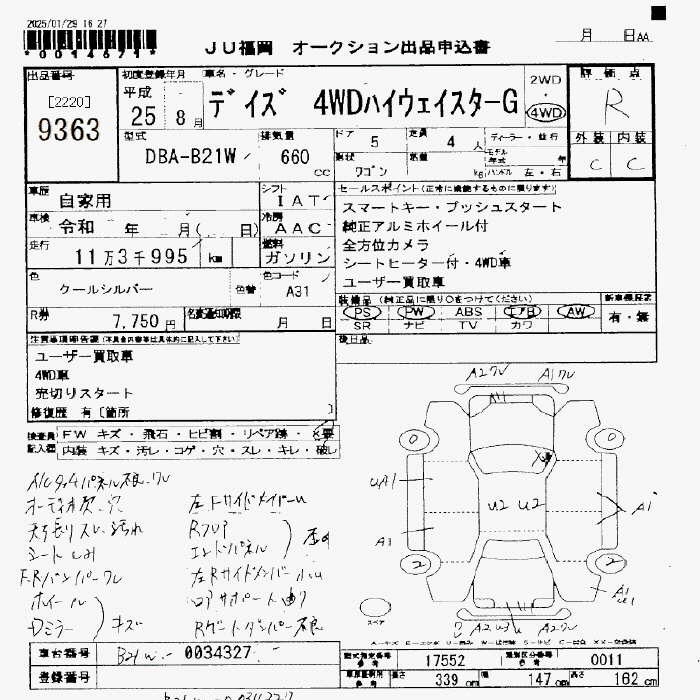 2025/01/29 16 27
*0014671*
月 日AA
JU福岡 オークション出品申込書
出品番号
[2220]
9363
初度登録年月
平成
25 8月
車名・グレード
デイズ 4WDハイウェイスターG
2WD
4WD
評価点
R
外装 内装
C C
型式
DBA-B21W
排気量
660
cc
ドア 5
定員 4 人
形状 ワゴン
積量 kg
ディーラー・並行
モデル年式 年
ハンドル 左・右
車歴 自家用
シフト IAT
車検 令和 年 月( 日)
冷房 AAC
走行 11万3千995 km
燃料 ガソリン
色 クールシルバー 色替
色コード A31
R券 7,750円
名義変更期限 月 日
セールスポイント(正常に機能するものに限ります)
スマートキー・プッシュスタート
純正アルミホイール付
全方位カメラ
シートヒーター付・4WD車
ユーザー買取車
装備品(純正品に限り○をつけてください)
PS PW ABS エアB AW
SR ナビ TV カワ
新車保証書
有・無
後日品
注意事項申告欄(不具合内容等は具体的に記入して下さい)
ユーザー買取車
4WD車
売切りスタート
修復歴 有〔箇所 〕
検査員記入欄
FW キズ・飛石・ヒビ割・リペア跡・X要
内装 キズ・汚レ・コゲ・穴・スレ・キレ・破レ
オーディオ欠.穴
シートしみ
F.Rバンパーワレ
ホイール
Dミラー キズ
A2ワレ A1ワレ
UA1
A1
U2 U2
A1
0 0
2 2
スペア
車台番号 B21W-0034327
登録番号
型式指定番号 参考 17552
類別区分番号 参考 0011
長さ 339 cm 幅 147 cm 高さ 162 cm